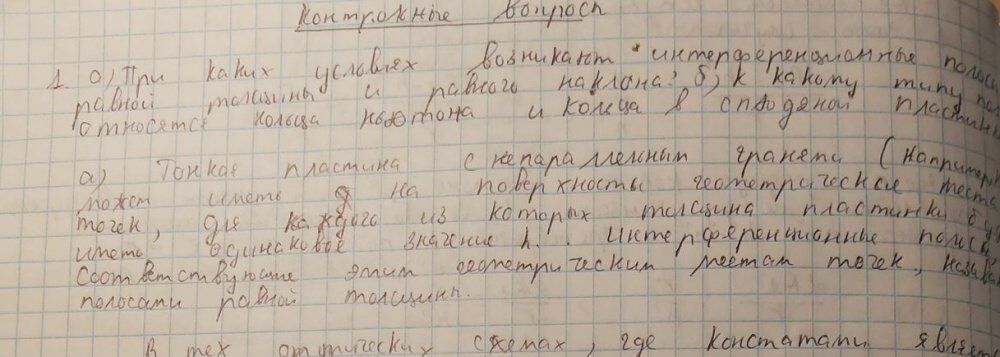 Контрольные вопросы
1. а) При каких условиях возникают интерференционные полосы
равной толщины и равного наклона? б) к какому типу по
относятся кольца ньютона и кольца в слюдяной пластин
а) Тонкая пластина с непараллельными гранями (например,
может иметь на поверхности геометрические места
точек, для каждого из которых толщина пластинки бу
иметь одинаковое значение h. Интерференционные полосы,
соответствующие этим геометрическим местам точек, назыв
полосами равной толщины.
В тех оптических схемах, где константами являет